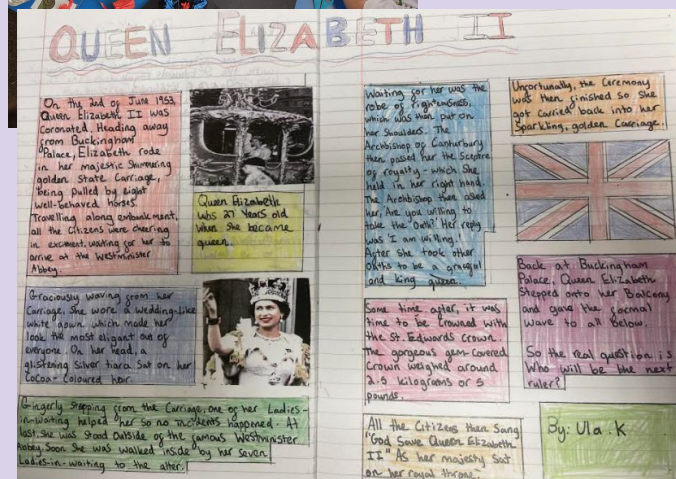 QUEEN ELIZABETH II
On the 2nd of June 1953,
Queen Elizabeth II was
Coronated. Heading away
from Buckingham
Palace, Elizabeth rode
in her majestic Shimmering
golden State Carriage,
being pulled by eight
well-behaved horses.
Travelling along embankment,
all the Citizens were cheering
in excitement, waiting for her to
arrive at the Westminister
Abbey.
Queen Elizabeth
was 27 Years old
when she became
queen.
Graciously waving from her
Carriage, She wore a Wedding-like
white gown which made her
look the most eligant out of
everyone. On her head, a
glistening Silver tiara Sat on her
Cocoa-Coloured hair.
Gingerly stepping from the Carriage, one of her Ladies-
in-waiting helped her so no incidents happened. At
last, She was stood outside of the famous Westminister
Abbey. Soon She was walked inside by her seven
Ladies-in-waiting to the alter.
Waiting for her was the
robe of righteousness,
which was then put on
her Shoulders. The
Archbishop of Canturbury
then passed her the Sceptre
of royalty - which She
held in her right hand.
The Archbishop then asked
her, Are you willing to
take the Oath?' Her reply
was 'I am willing.'
After she took other
Oaths to be a graceful
and king queen.
Some time after, it was
time to be Crowned with
the St. Edwords Crown.
The gorgeous gem-Covered
Crown weighed around
2.5 Kilograms or 5
pounds.
All the Citizens then Sang
"God Save Queen Elizabeth
II" As her majesty Sat
on her royal throne.
Unfortunally, the Ceremony
was then finished so She
got carried back into her
Sparkling, golden Carriage.
Back at Buckingham
Palace, Queen Elizabeth
Stepped onto her Balcony
and gave the formal
wave to all Below.
So the real question is
Who will be the next
ruler?
By: Ula.K